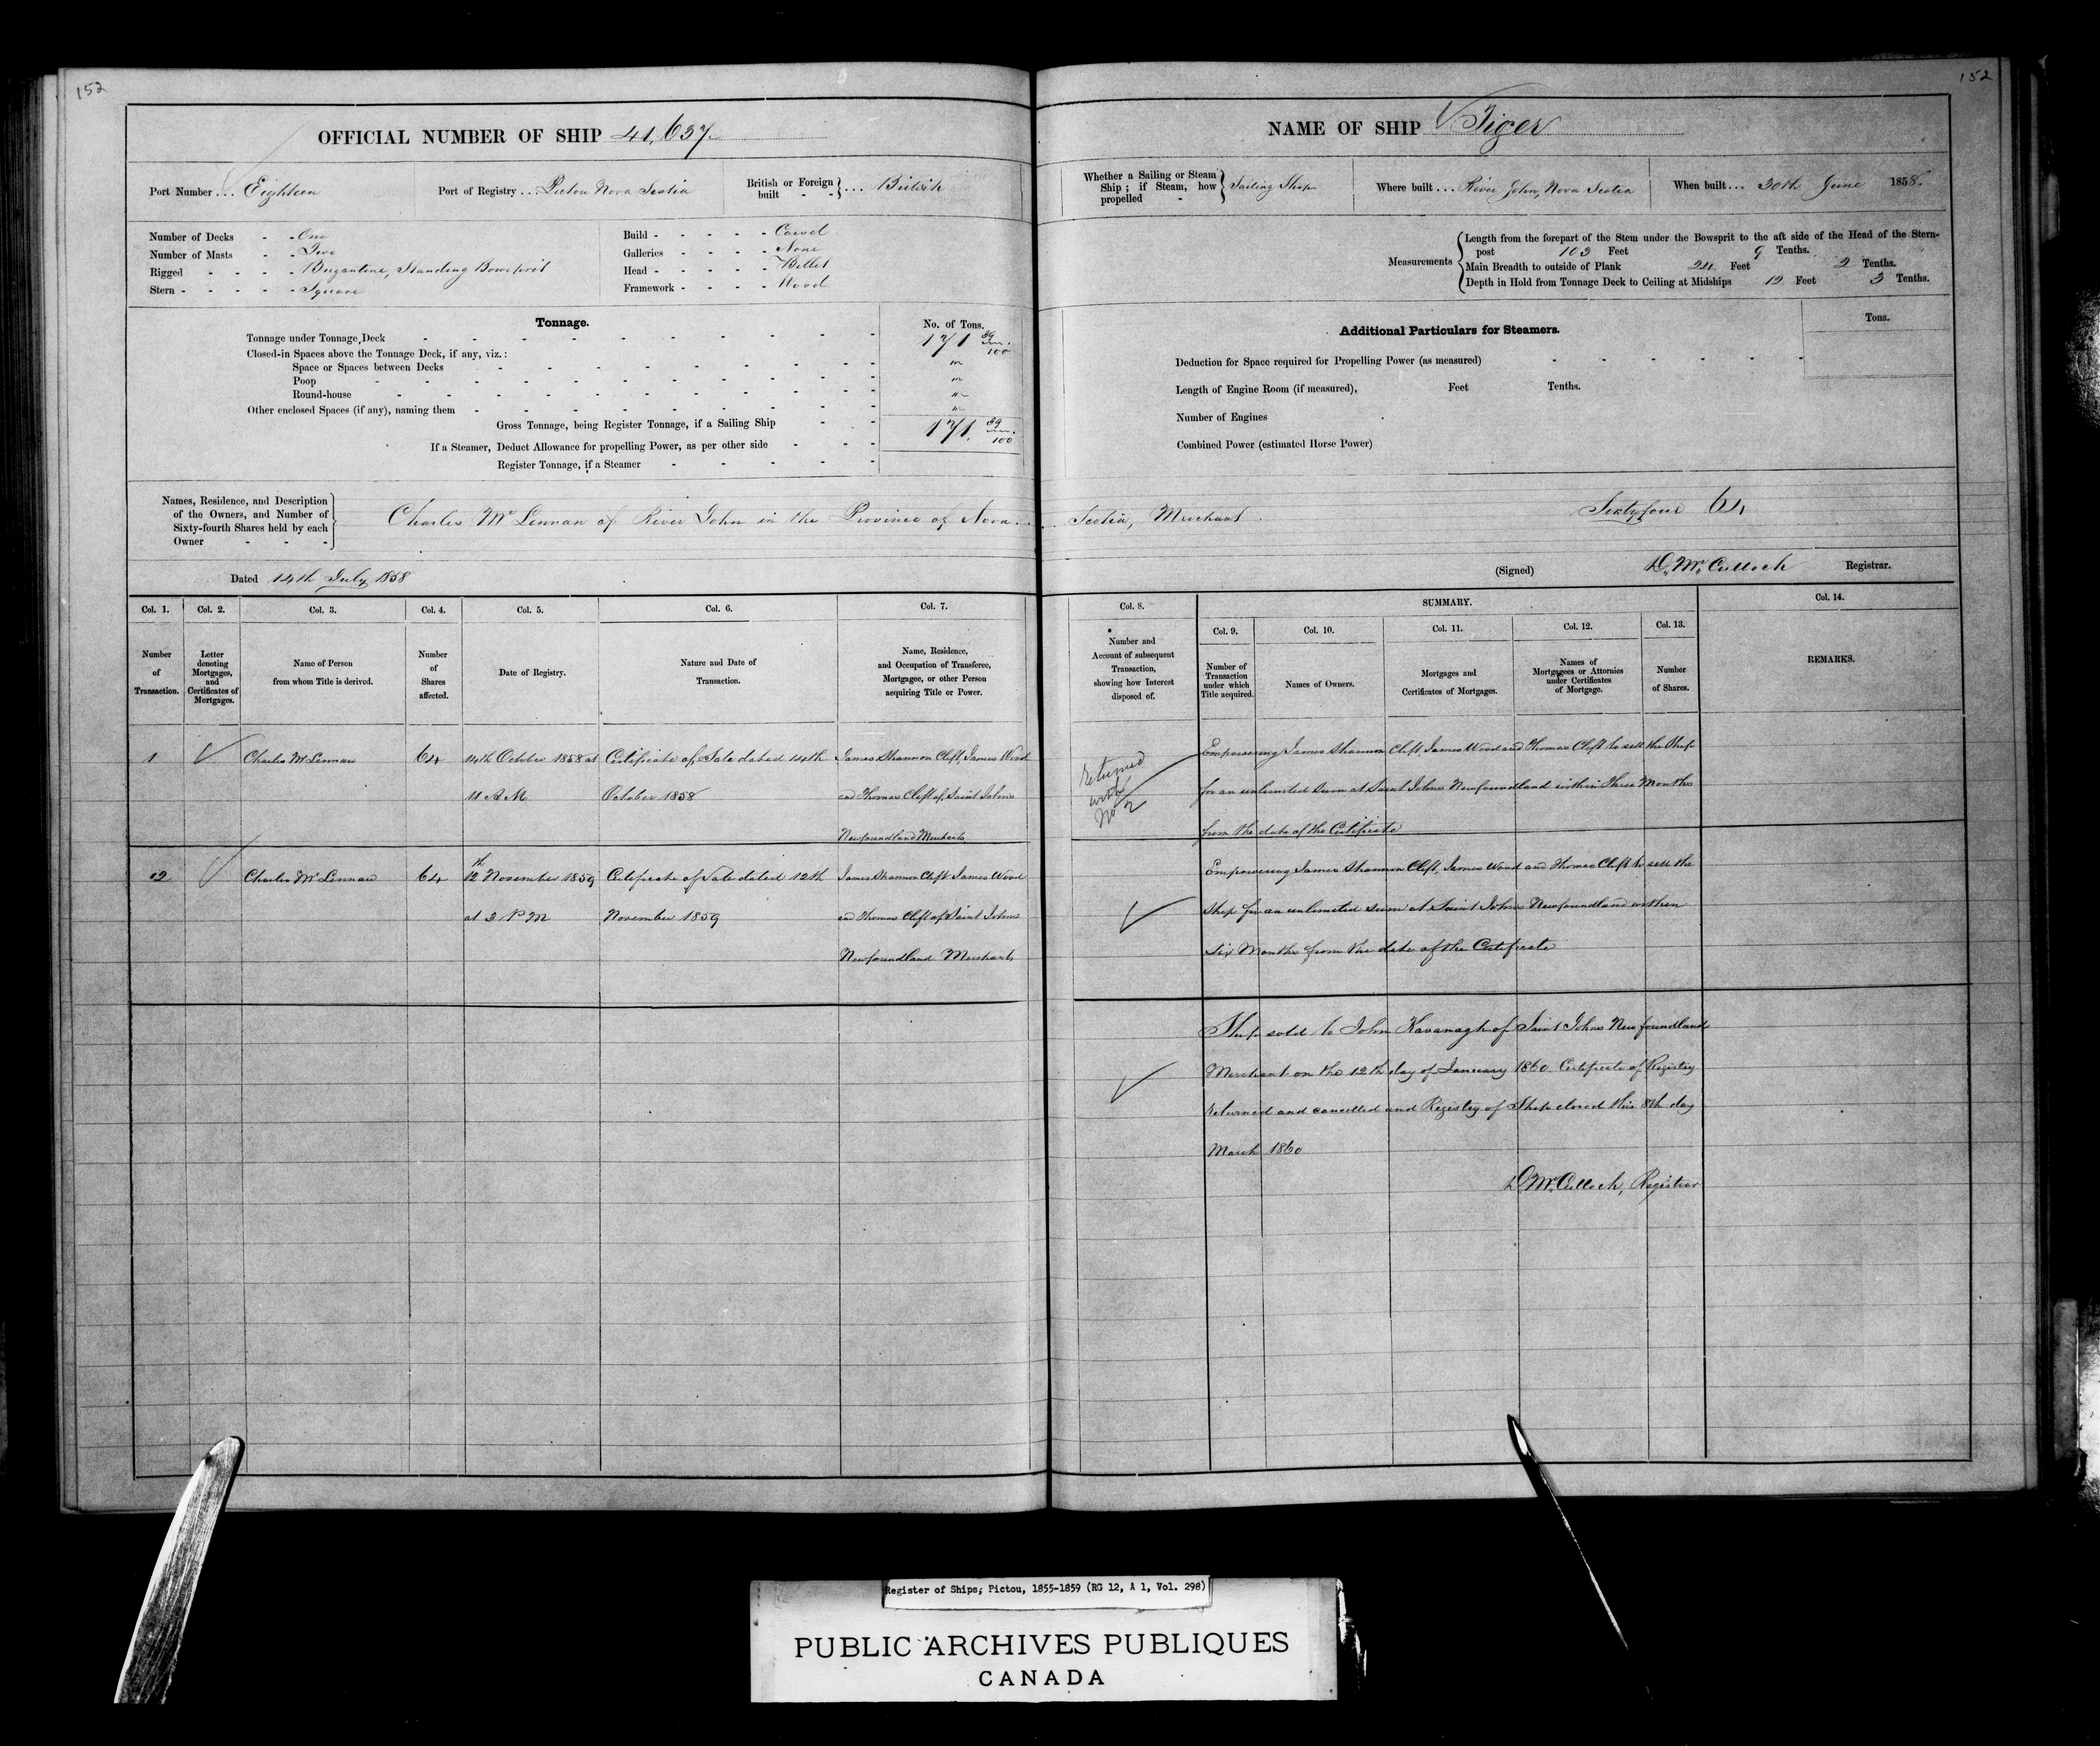 152
OFFICIAL NUMBER OF SHIP 41,637
Port Number ... Eighteen
Port of Registry ... Pictou Nova Scotia
British or Foreign built - - } ... British
Number of Decks - - One
Number of Masts - - Two
Rigged - - - - Brigantine, Standing Bowsprit
Stern - - - - - Square
Build - - - - - Carvel
Galleries - - - - None
Head - - - - - Billet
Framework - - - - Wood
Tonnage.
No. of Tons.
Tonnage under Tonnage Deck 171 39/100
Closed-in Spaces above the Tonnage Deck, if any, viz.:
Space or Spaces between Decks "
Poop "
Round-house "
Other enclosed Spaces (if any), naming them "
Gross Tonnage, being Register Tonnage, if a Sailing Ship 171. 39/100
If a Steamer, Deduct Allowance for propelling Power, as per other side
Register Tonnage, if a Steamer
152
NAME OF SHIP Tiger
Whether a Sailing or Steam Ship; if Steam, how propelled - } Sailing Ship
Where built ... River John, Nova Scotia
When built ... 30th June 1858.
Measurements
Length from the forepart of the Stem under the Bowsprit to the aft side of the Head of the Stern-
post 103 Feet 9 Tenths.
Main Breadth to outside of Plank 24 Feet 2 Tenths.
Depth in Hold from Tonnage Deck to Ceiling at Midships 12 Feet 3 Tenths.
Additional Particulars for Steamers.
Tons.
Deduction for Space required for Propelling Power (as measured)
Length of Engine Room (if measured), Feet Tenths.
Number of Engines
Combined Power (estimated Horse Power)
Names, Residence, and Description
of the Owners, and Number of
Sixty-fourth Shares held by each
Owner - - -
Charles McLennan of River John in the Province of Nova Scotia, Merchant Sixtyfour 64
Dated 14th July 1858
(Signed) D. McCulloch Registrar.
Col. 1. Col. 2. Col. 3. Col. 4. Col. 5. Col. 6. Col. 7.
Number of Transaction.
Letter denoting Mortgages, and Certificates of Mortgages.
Name of Person from whom Title is derived.
Number of Shares affected.
Date of Registry.
Nature and Date of Transaction.
Name, Residence, and Occupation of Transferee, Mortgagee, or other Person acquiring Title or Power.
Col. 8.
Number and Account of subsequent Transaction, showing how Interest disposed of.
SUMMARY.
Col. 9. Col. 10. Col. 11. Col. 12. Col. 13.
Number of Transaction under which Title acquired.
Names of Owners.
Mortgages and Certificates of Mortgages.
Names of Mortgages or Attornies under Certificates of Mortgage.
Number of Shares.
Col. 14.
REMARKS.
1 Charles McLennan 64 14th October 1858 at Certificate of Sale dated 14th James Shannon Clift, James Wood
11 A M October 1858 and Thomas Clift of Saint Johns
Newfoundland Merchants
Returned
with
No 2
Empowering James Shannon Clift, James Wood and Thomas Clift to sell the Ship
for an unlimited sum at Saint Johns Newfoundland within Three Months
from the date of the Certificate
2 Charles McLennan 64 12th November 1859 Certificate of Sale dated 12th James Shannon Clift James Wood
at 3 P M November 1859 and Thomas Clift of Saint Johns
Newfoundland Merchants
Empowering James Shannon Clift, James Wood and Thomas Clift to sell the
Ship for an unlimited sum at Saint Johns Newfoundland within
Six Months from the date of the Certificate
Ship sold to John Kavanagh of Saint Johns Newfoundland
Merchant on the 12th day of January 1860. Certificate of Registry
returned and cancelled and Registry of Ship closed this 8th day
March 1860
D McCulloch, Registrar
Register of Ships, Pictou, 1855-1859 (RG 12, A 1, Vol. 298)
PUBLIC ARCHIVES PUBLIQUES
CANADA